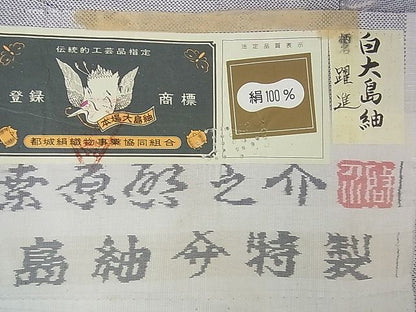 伝統的工芸品指定
登録 商標
本場大島紬
都城絹織物事業協同組合
法定品質表示
絹100%
白大島紬
躍進
原 之介
島紬 特製